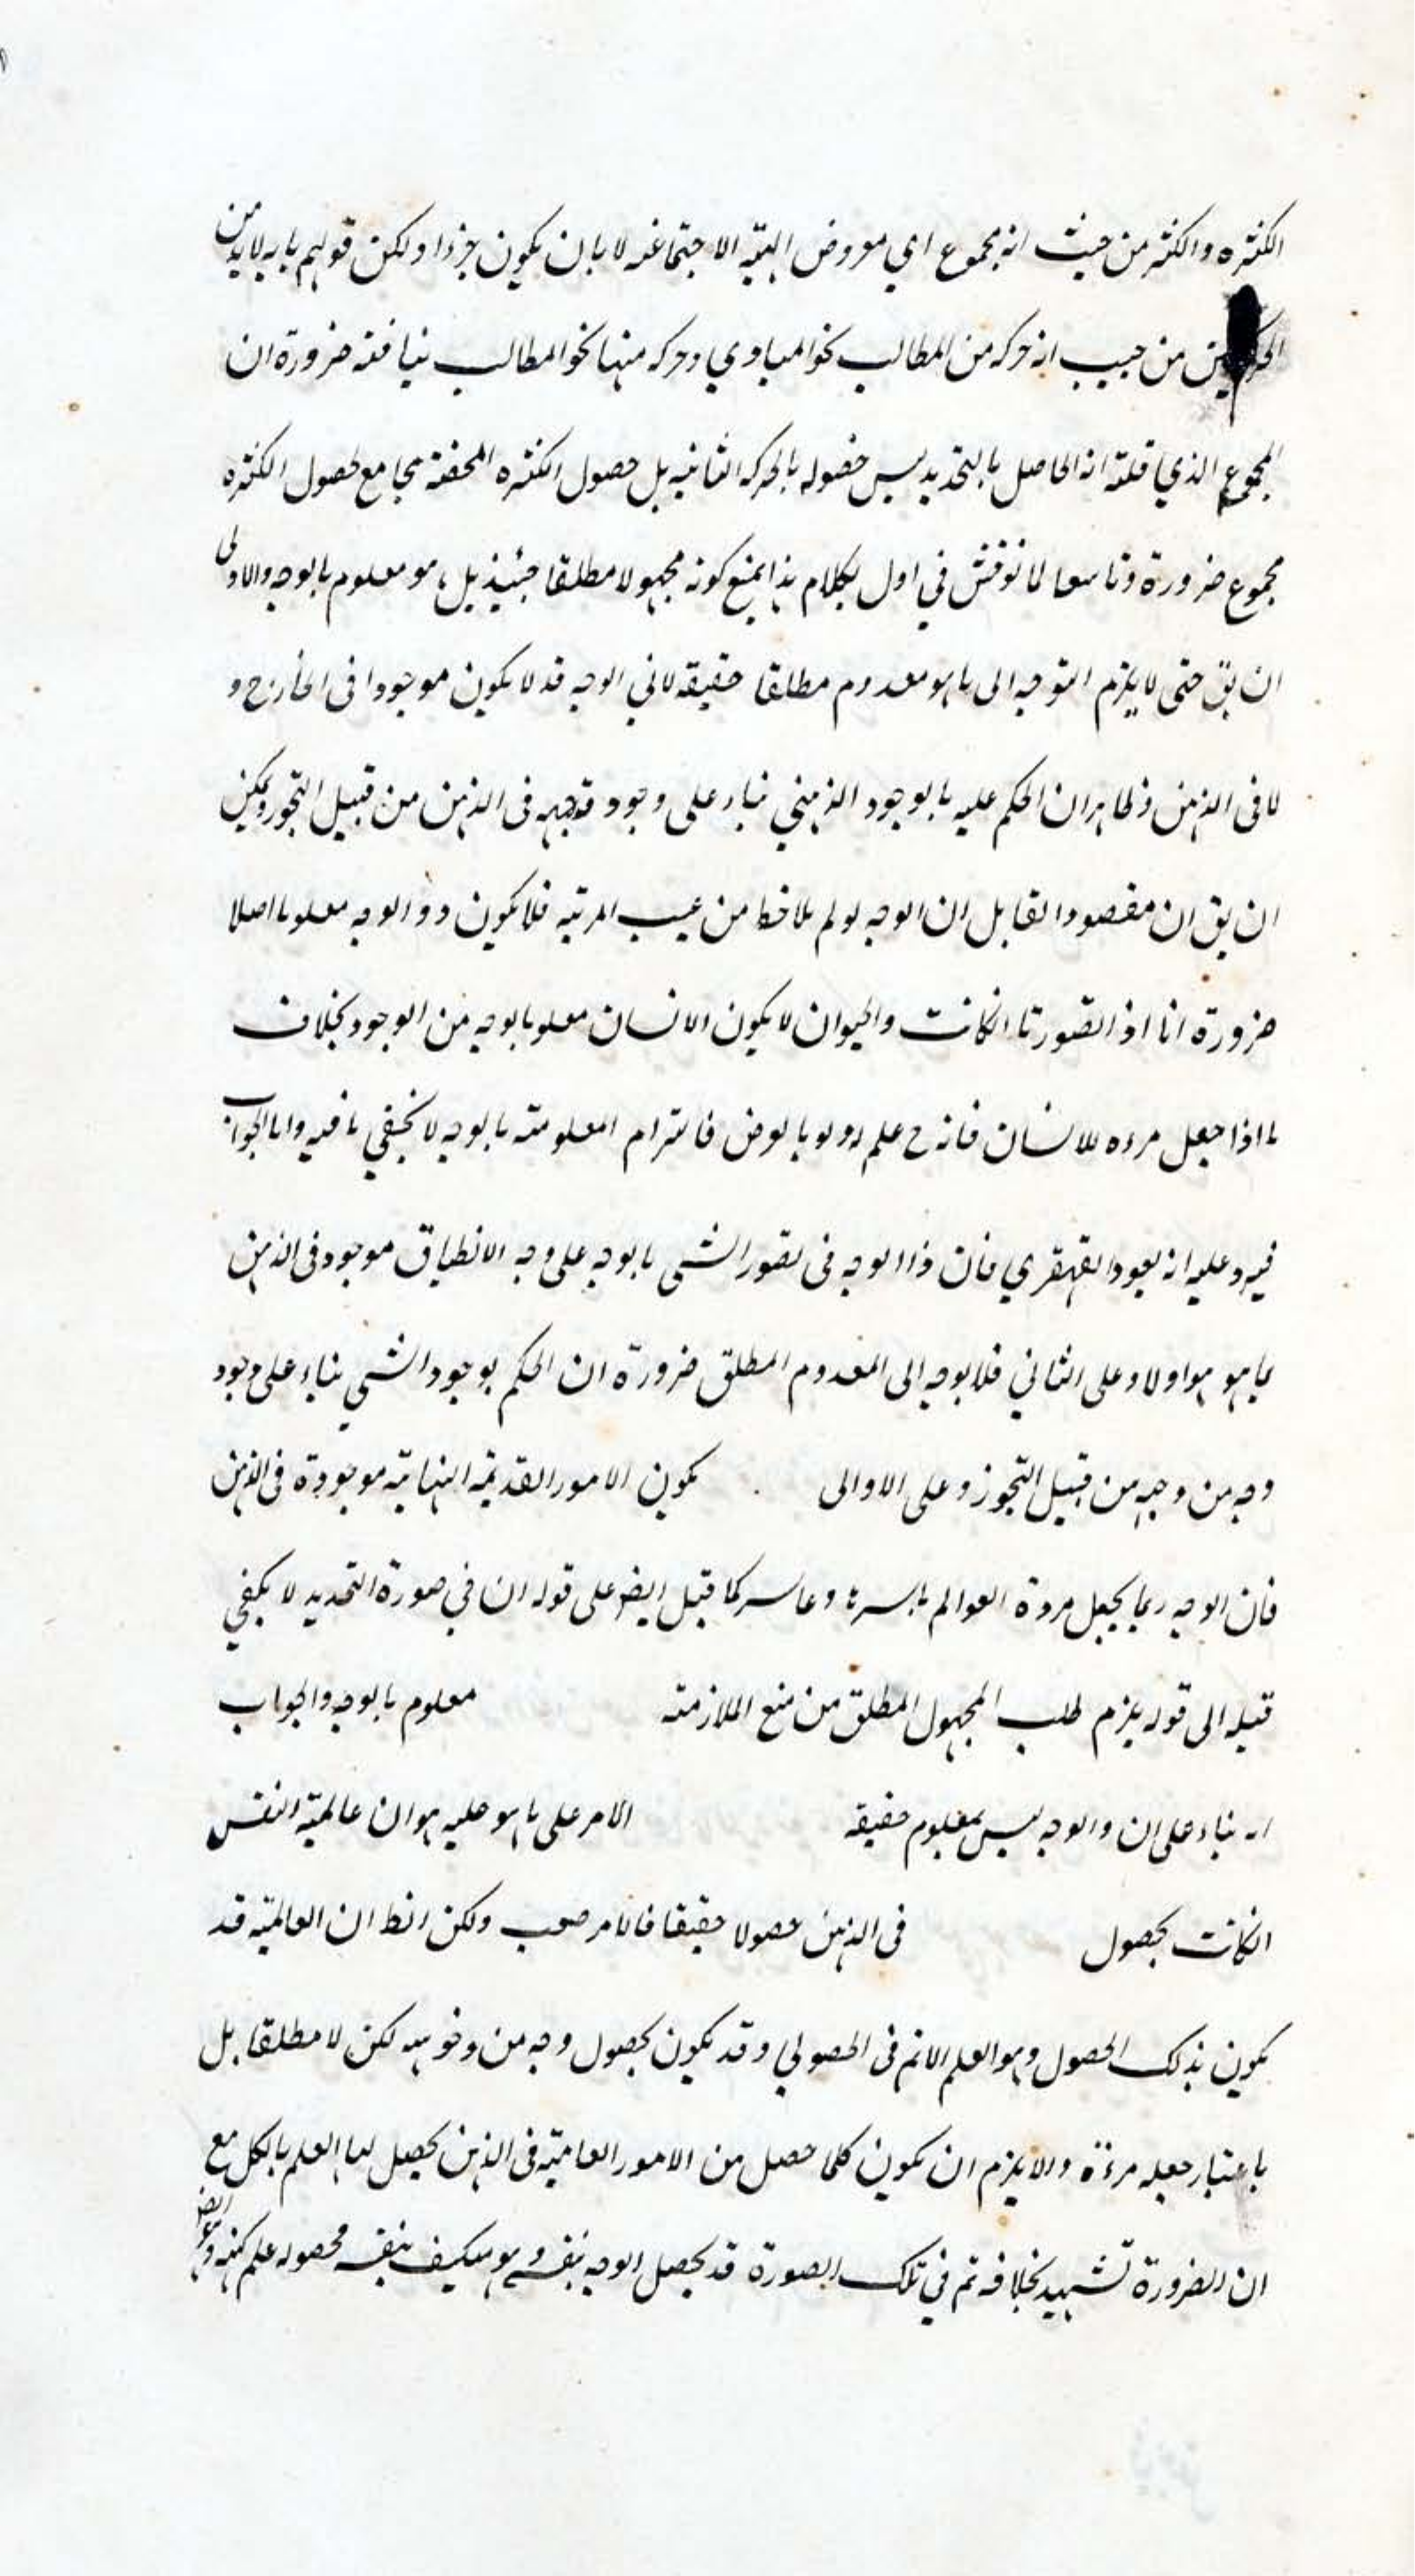 الكثره والكثره من حيث انه مجموع اي معروض الهيّه الاجتماعيه لا بان يكون جزءا ولكن قولهم بانه لابد من
من حيث انه حركه من المطالب نحو المبادي وحركه منها نحو المطالب ينافيه ضرورة ان
المجموع الذي قلته انه الحاصل بالتحديد ليس حصوله بالحركه الثانيه بل حصول الكثره المحضه مجامع لحصول الكثره
مجموع ضرورة وتاسعا لما نوقش في اول الكلام هذا بمنع كونه مجهولا مطلقا حينئذ بل هو معلوم بالوجه والاولى
ان يق حتى لا يلزم التوجه الى ما هو معدوم مطلقا حقيقه لان الوجه قد لا يكون موجودا فى الخارج و
لا فى الذهن وظاهر ان الحكم عليه بالوجود الذهني بناء على وجود وجهه فى الذهن من قبيل التجوز ويمكن
ان يق ان مقصود القايل ان الوجه لو لم يلاحظ من المرتبه فلا يكون ذو الوجه معلوما اصلا
ضرورة انا اذا تصورنا الكاتب والحيوان لا يكون الانسان معلوما بوجه من الوجود بخلاف
ما اذا جعل مرءه للانسان فانه ح علم ولو بالعرض فالتزام المعلوميه بالوجه لا يخفي ما فيه واما الجواب
فيرد عليه انه يعود القهقري فان ذا الوجه فى تصور الشى بالوجه على وجه الانطباق موجود فى الذهن
بما هو هو اولا وعلى الثاني فلا توجه الى المعدوم المطلق ضرورة ان الحكم بوجود الشي بناء على وجود
وجه من وجهه من قبيل التجوز وعلى الاوالى يكون الامور الغير المتناهيه موجودة فى الذهن
فان الوجه ربما يجعل مروة العوالم باسرها وعاشر كما قيل ايضر على قوله ان في صورة التحديد لا يكفي
قبله الى قوله يلزم طلب المجهول المطلق من منع الملازمه معلوم بالوجه والجواب
انه بناء على ان ذا الوجه ليس بمعلوم حقيقه الامر على ما هو عليه هو ان عالميّه النفس
الكانت بحصول فى الذهن حصولا حقيقا فالامر صعب ولكن الظ ان العالميّه قد
يكون بذلك الحصول وهو العلم الاتم فى الحصولي وقد يكون بحصول وجه من وجوهه لكن لا مطلقا بل
باعتبار جعله مرءة والا يلزم ان يكون كلما حصل من الامور العاميّه فى الذهن يحصل لنا العلم بالكل مع
ان الضرورة تشهد بخلافه ثم في تلك الصورة قد يحصل الوجه بنفسه فحصوله علم كنهه